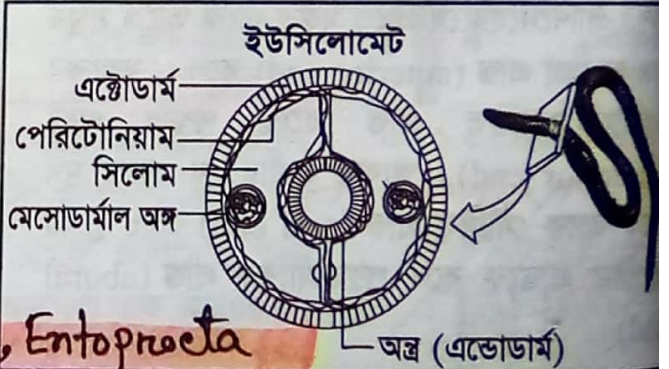 ইউসিলোমেট
এক্টোডার্ম
পেরিটোনিয়াম
সিলোম
মেসোডার্মাল অঙ্গ
অন্ত্র (এন্ডোডার্ম)
, Entoprocta